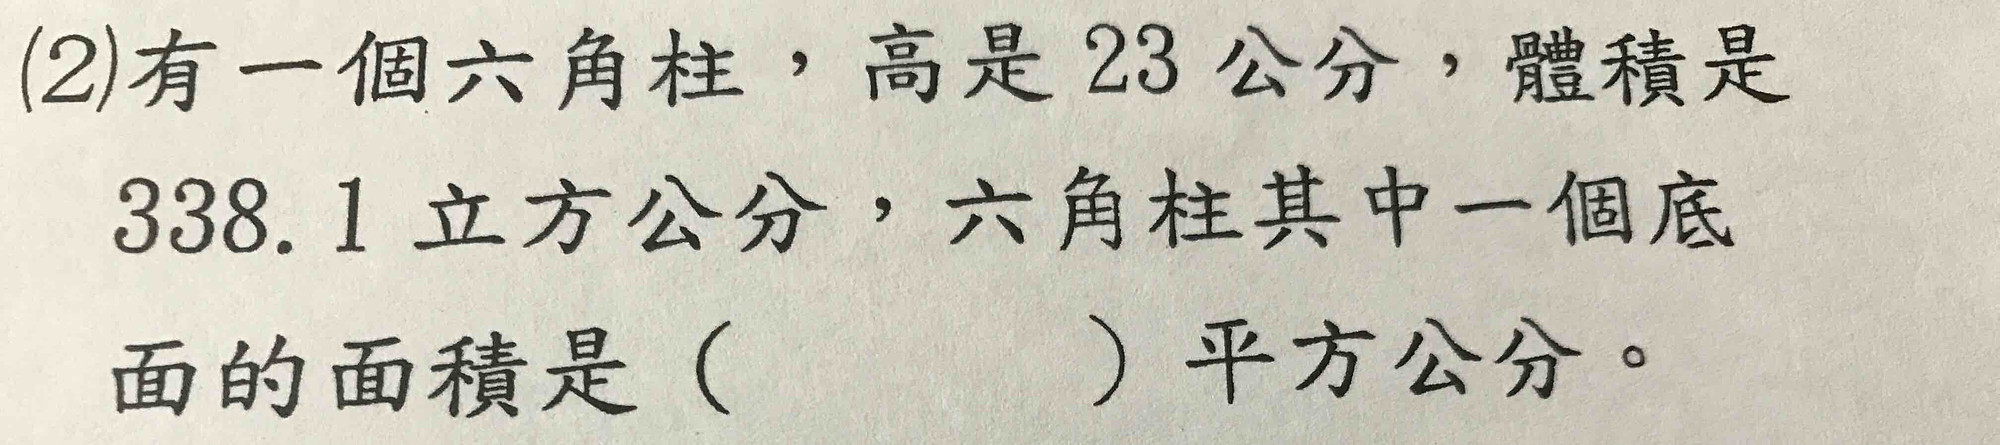 (2)有一個六角柱，高是23公分，體積是
338.1立方公分，六角柱其中一個底
面的面積是（　　　　）平方公分。